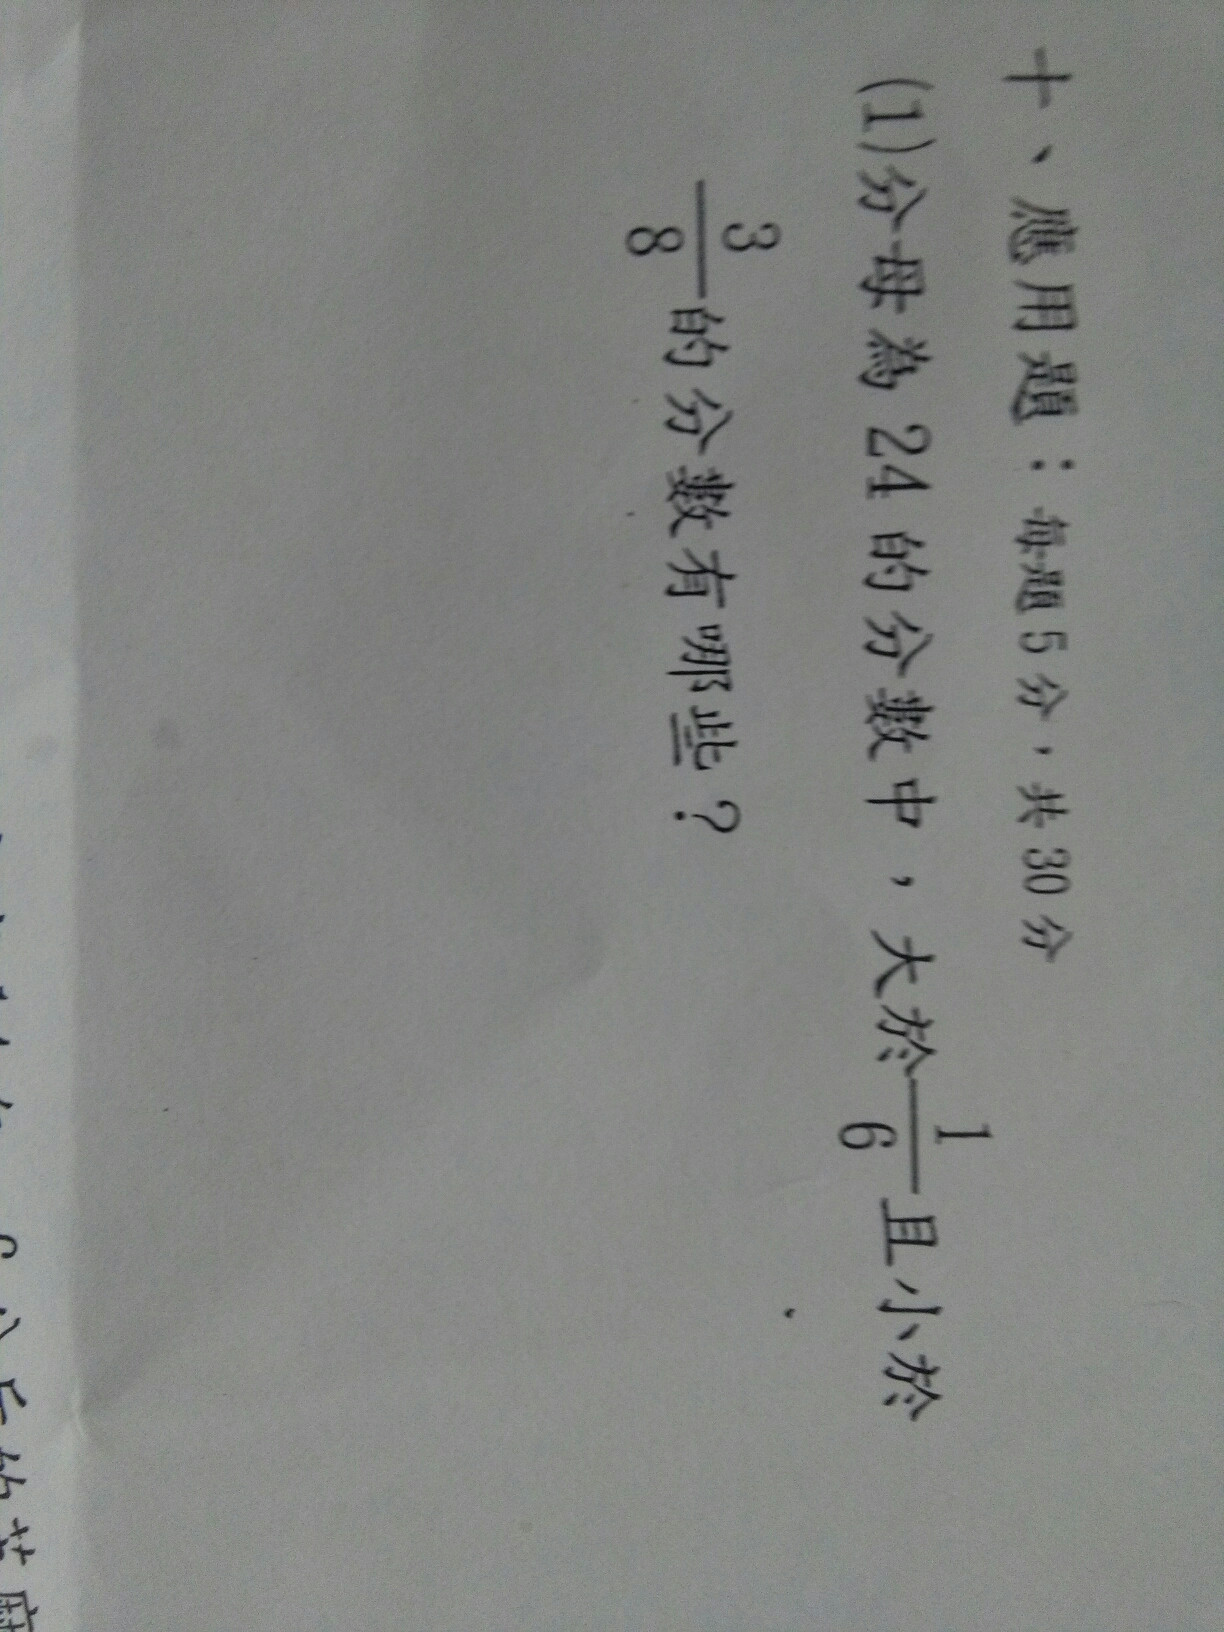 十、應用題：每題5分，共30分
(1)分母為24的分數中，大於1/6且小於
3/8的分數有哪些？